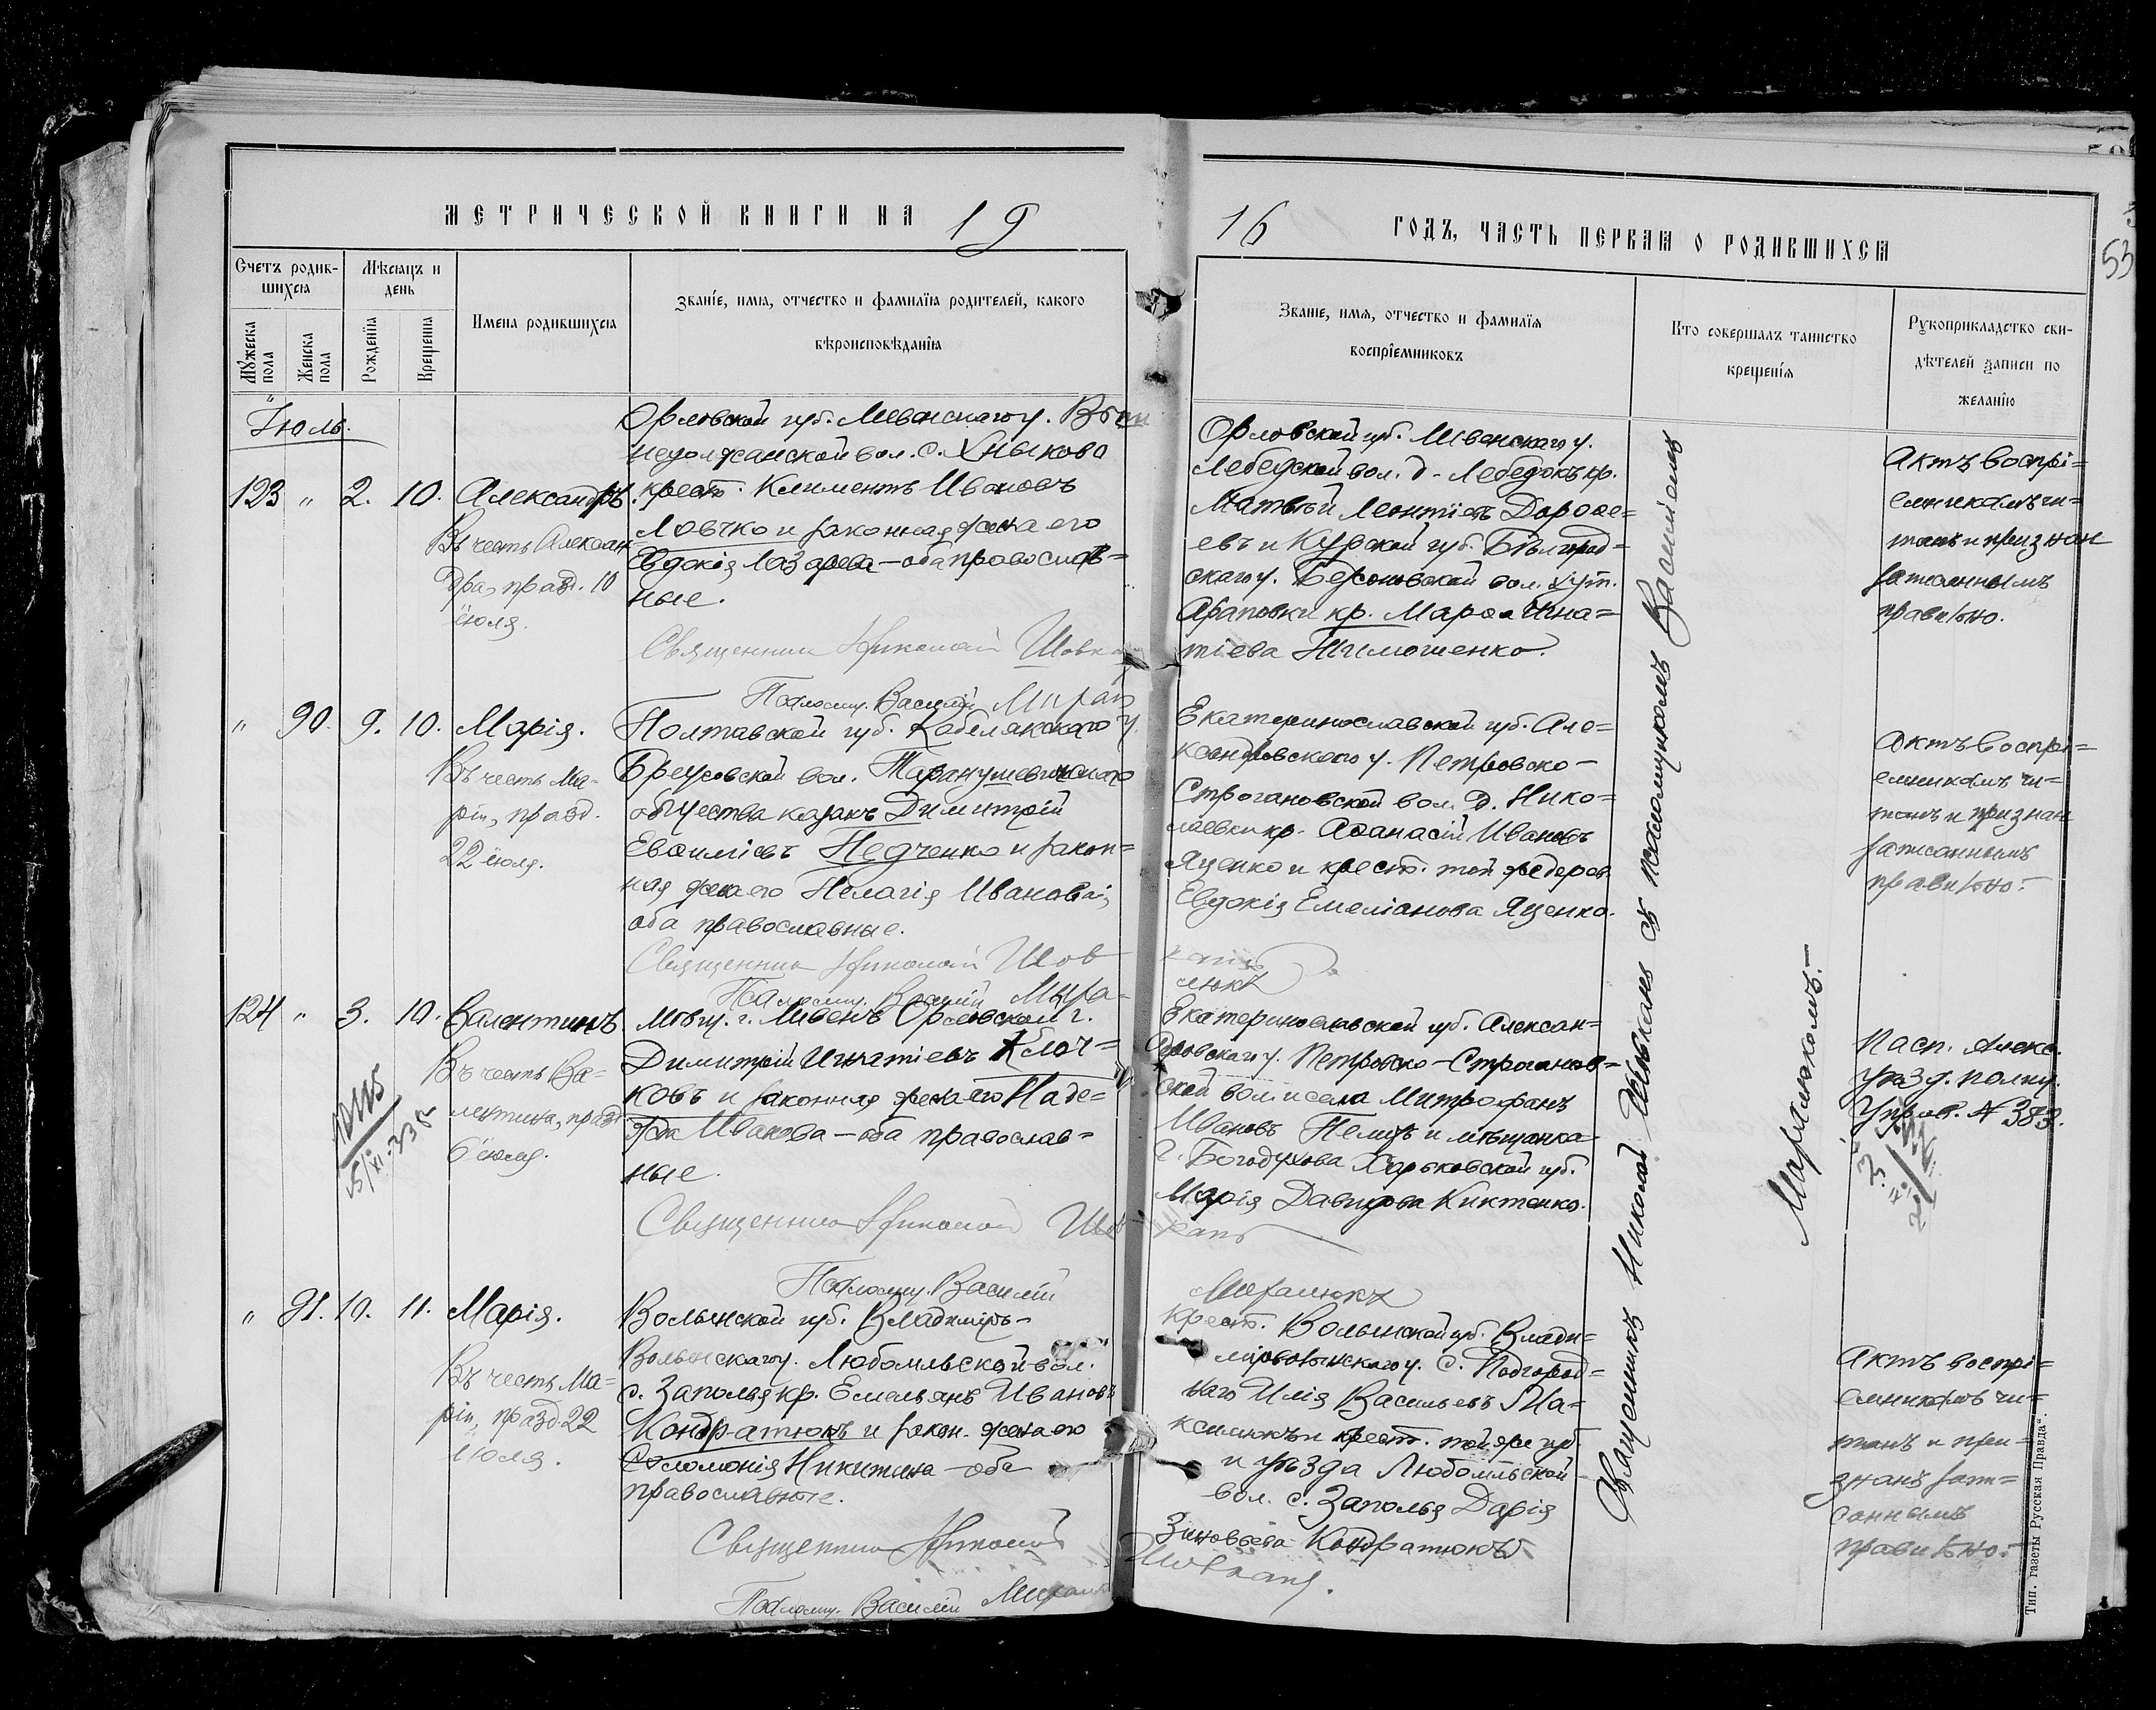 МЕТРИЧЕСКОЙ КНИГИ НА 19
16 ГОДЪ, ЧАСТЬ ПЕРВАЯ О РОДИВШИХСЯ
53
Счетъ родив-
шихся
Мѣсяцъ и
день
Мужеска пола
Женска пола
Рожденїя
Крещенїя
Имена родившихся
Званїе, имя, отчество и фамилїя родителей, какого
вѣроисповѣданїя
Званїе, имя, отчество и фамилїя
воспрїемниковъ
Кто совершалъ таинство
крещенїя
Рукоприкладство сви-
дѣтелей записи по
желанїю
Іюль.
123 " 2. 10. Александръ.
Въ честь Алексан=
дра, празд. 10
іюля.
Орловской губ. Ливенскаго у.
вол. с. Хмыково
крест. Климентъ Ивановъ
Ловчко и законная жена его
Евдокія Лазарева — оба православ=
ные.
Священникъ Николай
Псаломщ. Василій
Орловской губ. Ливенскаго у.
Лебедской вол. д. Лебедокъ кр.
Матвѣй Леонтіевъ Дорофе=
евъ и Курской губ. Бѣлгород=
скаго у. вол. хут.
Араповки кр. Марфа Игна=
тіева Тимошенко.
Актъ воспрі=
емникамъ чи=
танъ и признан
записаннымъ
правильно.
" 90. 9. 10. Марія.
Въ честь Ма-
ріи, празд.
22 іюля.
Полтавской губ. Кобелякскаго у.
Бреусовской вол.
общества казакъ Димитрій
Евфиміевъ Педченко и закон=
ная жена его Пелагія Иванова,
оба православные.
Священникъ Николай Шов
Псаломщ. Василій
Екатеринославской губ. Але=
ксандровскаго у. Петровско-
Строгановской вол. д. Нико=
лаевки кр. Афанасій Ивановъ
Яценко и крест. той же дерев.
Евдокія Емеліанова Яценко.
Актъ воспрі=
емникамъ чи=
танъ и признан
записаннымъ
правильно.-
124 " 3. 10. Валентинъ
Въ честь Ва-
лентина, празд.
6 іюля.
Мѣщ. г. Ливенъ Орловской г.
Димитрій Игнатіевъ Клоч=
ковъ и законная жена его Наде=
жда Иванова — оба православ=
ные.
Священникъ Николай
Псаломщ. Василій
Екатеринославской губ. Алексан=
дровскаго у. Петровско-Строганов=
ской вол. и села Митрофанъ
Ивановъ и мѣщанка
г. Богодухова Харьковской губ.
Марія Давидова Киктенко.
Пасп. Алекс.
уѣзд. полиц.
Управ. № 383.
" 91. 10. 11. Марія.
Въ честь Ма=
ріи, празд. 22
Іюля.
Волынской губ. Владимиръ-
Волынскаго у. Любомльской вол.
с. Заполья кр. Емельянъ Ивановъ
Кондратюкъ и закон. жена его
Соломонія Никитина — оба
православные.
Священникъ Николай
Псаломщ. Василій
крест. Волынской губ. Влади=
мірволынскаго у. с. Подгород=
наго Илія Васильевъ Ма=
ксимюкъ и крест. той же губ.
и уѣзда Любомльской
вол. с. Заполья Дарія
Зиновьева Кондратюкъ
Актъ воспрі=
емникамъ чи=
танъ и при=
знанъ запи=
саннымъ
правильно.-
Священникъ Николай Шовканъ съ псаломщикомъ Василіемъ
Тип. газеты "Русская Правда".